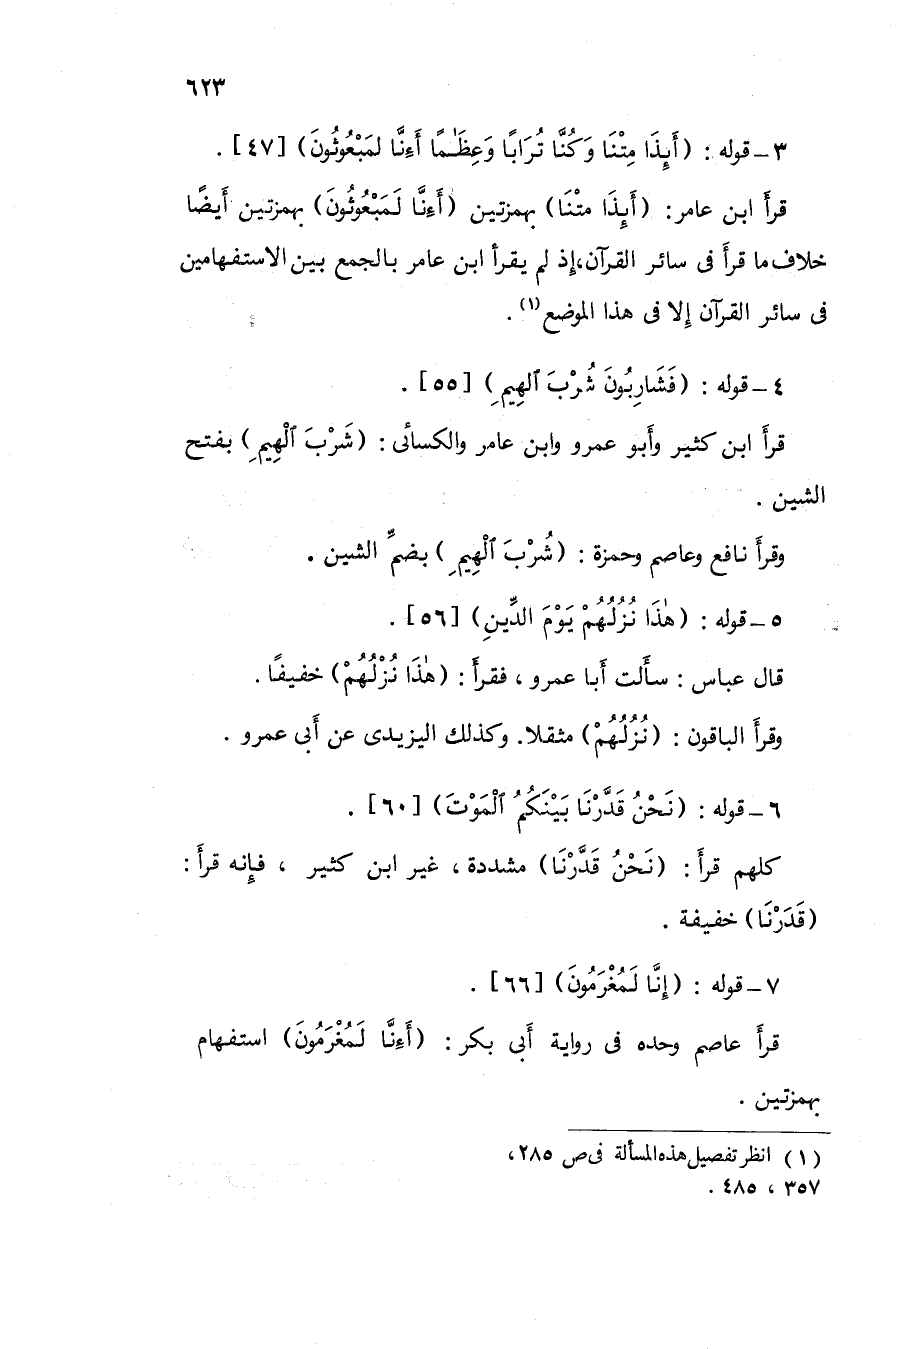 ٦٢٣
٣ – قوله : (أَيِذَا مِتْنَا وَكُنَّا تُرَابًا وَعِظَـٰمًا أَءِنَّا لَمَبْعُوثُونَ) [٤٧] .
قرأ ابن عامر: (أَيِذَا مِتْنَا) بهمزتين (أَءِنَّا لَمَبْعُوثُونَ) بهمزتين أَيضًا
خلاف ما قرأَ فى سائر القرآن،إذ لم يقرأ ابن عامر بالجمع بين الاستفهامين
فى سائر القرآن إلا فى هذا الموضع(١) .
٤ – قوله : (فَشَارِبُونَ شُرْبَ ٱلهِيمِ) [٥٥] .
قرأَ ابن كثير وأَبو عمرو وابن عامر والكسائى : (شَرْبَ ٱلْهِيمِ) بفتح
الشين .
وقرأَ نافع وعاصم وحمزة : (شُرْبَ ٱلْهِيمِ) بضمِّ الشين .
٥ – قوله : (هٰذَا نُزُلُهُمْ يَوْمَ الدِّينِ) [٥٦] .
قال عباس : سأَلت أَبا عمرو ، فقرأَ : (هٰذَا نُزْلُهُمْ) خفيفًا .
وقرأَ الباقون : (نُزُلُهُمْ) مثقلا. وكذلك اليزيدى عن أَبى عمرو .
٦ – قوله : (نَحْنُ قَدَّرْنَا بَيْنَكُمُ ٱلْمَوْتَ) [٦٠] .
كلهم قرأَ : (نَحْنُ قَدَّرْنَا) مشددة ، غير ابن كثير ، فإنه قرأَ :
(قَدَرْنَا) خفيفة .
٧ – قوله : (إِنَّا لَمُغْرَمُونَ) [٦٦] .
قرأَ عاصم وحده فى رواية أَبى بكر : (أَءِنَّا لَمُغْرَمُونَ) استفهام
بهمزتين .
(١) انظر تفصيل هذه المسألة فى ص ٢٨٥،
٣٥٧ ، ٤٨٥ .